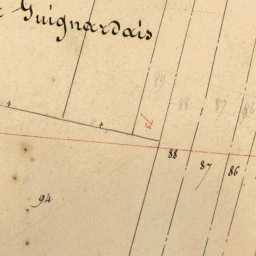 Guignardais
89 88 87 86
88 87 86
94